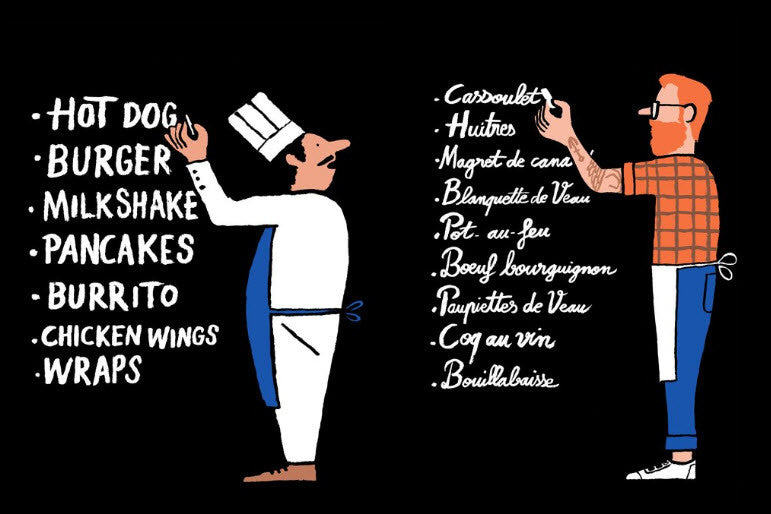 · HOT DOG
· BURGER
· MILKSHAKE
· PANCAKES
· BURRITO
· CHICKEN WINGS
· WRAPS
· Cassoulet
· Huîtres
· Magret de cana
· Blanquette de Veau
· Pot-au-feu
· Boeuf bourguignon
· Paupiettes de Veau
· Coq au vin
· Bouillabaisse